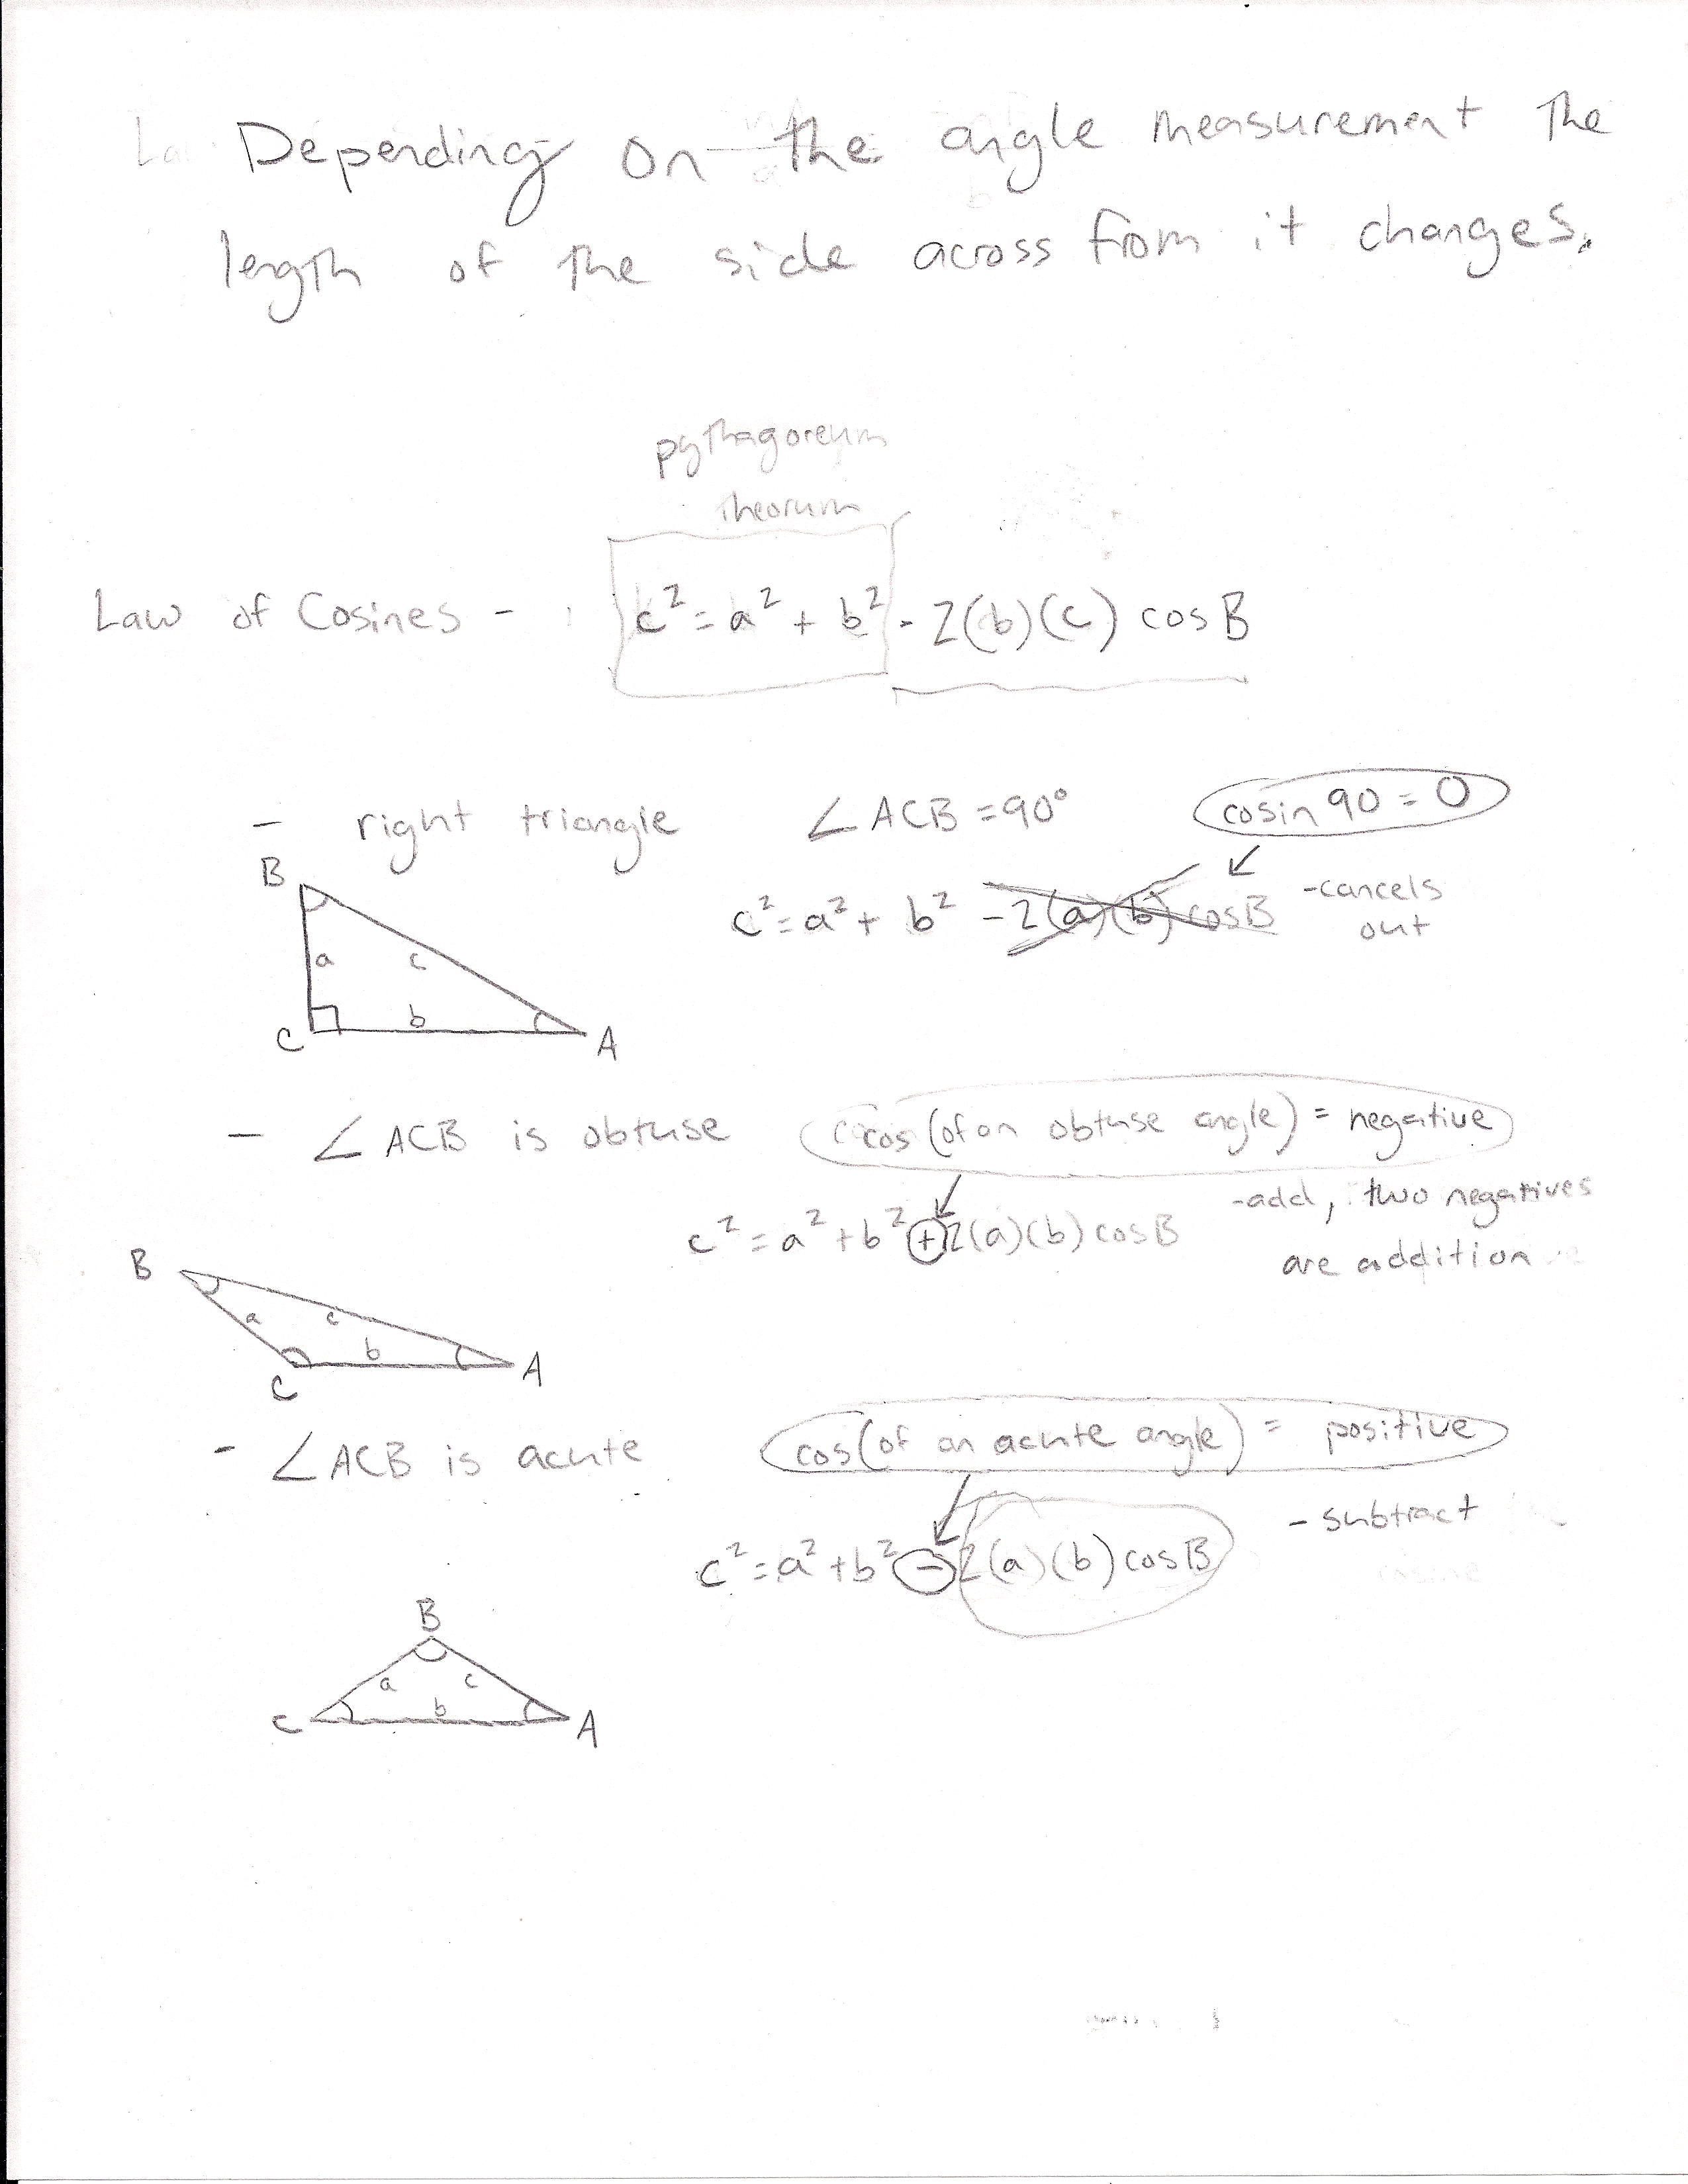 Depending on the angle measurement the
length of the side across from it changes.
pythagoreum
theorum
Law of Cosines - c² = a² + b² - 2(b)(c) cos B
- right triangle ∠ACB = 90° cosin 90 = 0
c² = a² + b² - 2(a)(b) cosB - cancels
out
B
a c
b
C A
- ∠ACB is obtuse cos (of an obtuse angle) = negative
- add, two negatives
c² = a² + b² + 2(a)(b) cosB
are addition
B
a c
b
C A
- ∠ACB is acute cos (of an acute angle) = positive
- subtract
c² = a² + b² - 2(a)(b) cosB
B
a c
b
C A